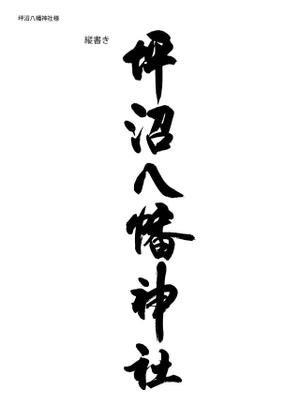 坪沼八幡神社様
縦書き
坪沼八幡神社